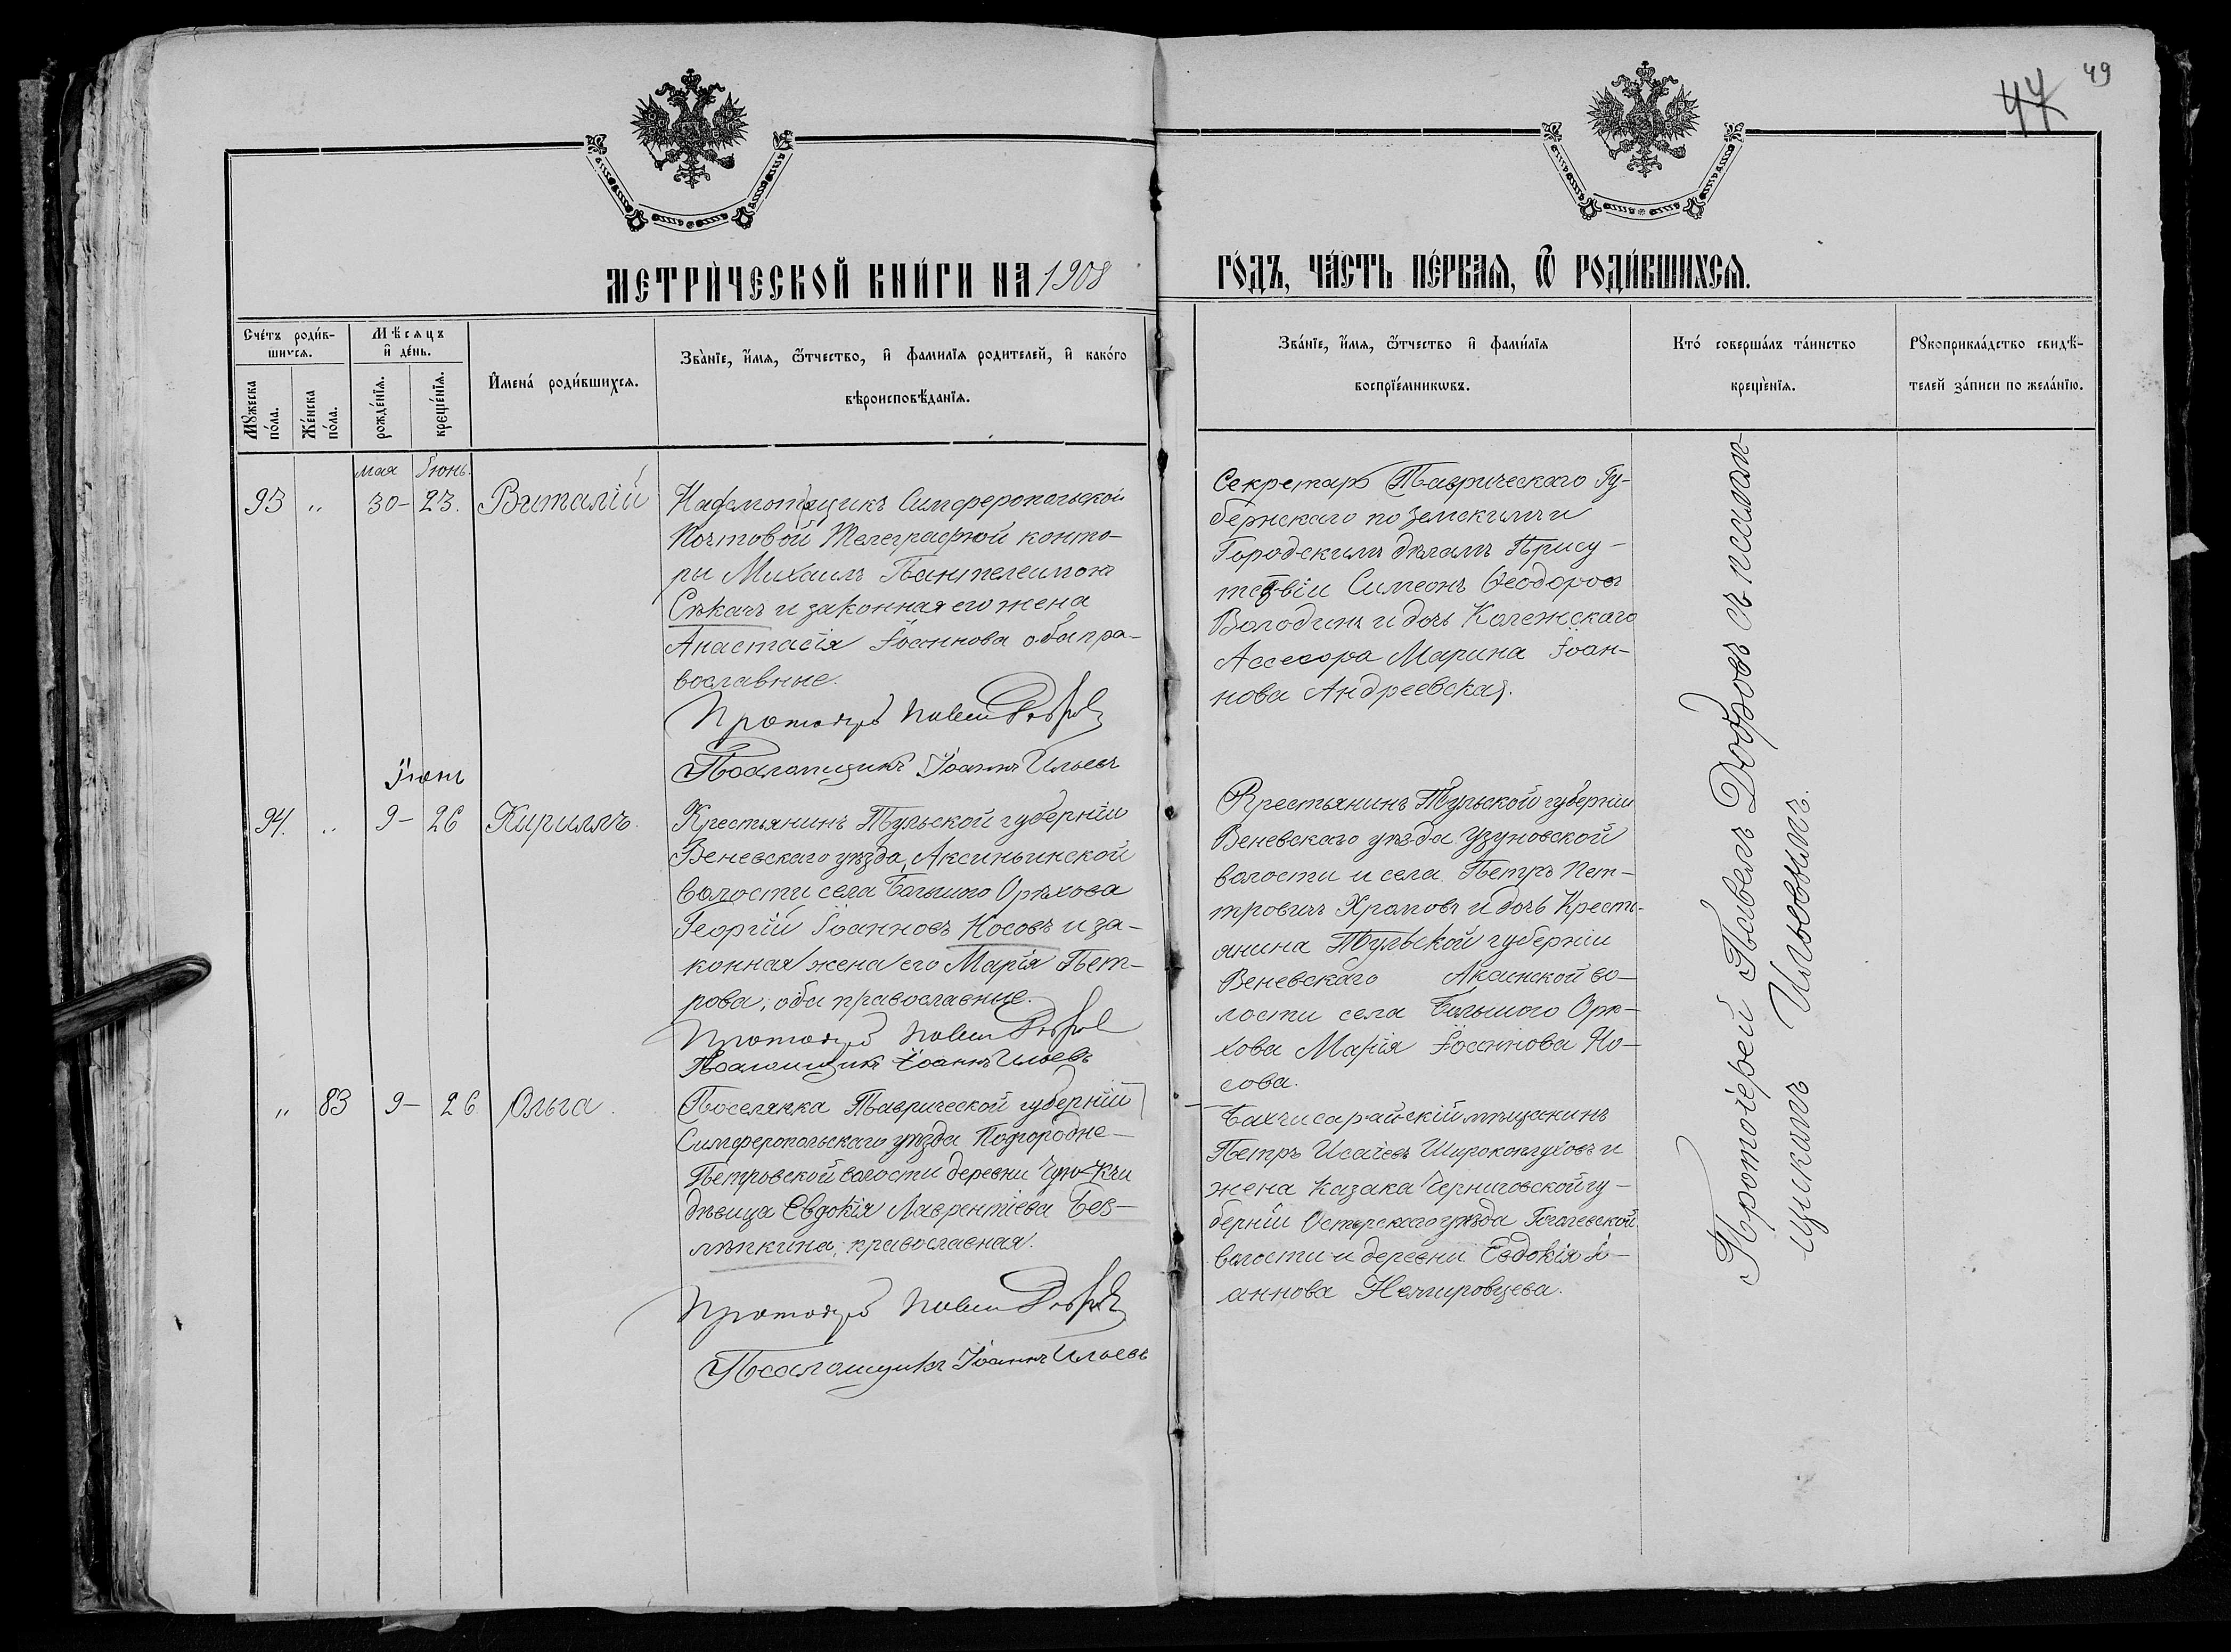 49
47
МЕТРИ́ЧЕСКОЙ КНИ́ГИ НА 1908
ГО́ДЪ, ЧА́СТЬ ПЕ́РВАѦ, Ѿ РОДИ́ВШИХСѦ.
Сче́тъ роди́в-
шихсѧ.
Мꙋжеска по́ла.
Же́нска по́ла.
Мѣсѧцъ
и҆ де́нь.
рожде́нїѧ.
креще́нїѧ.
И҆мена́ роди́вшихсѧ.
Зва́нїе, и҆́мѧ, ѻ҆́тчество, и҆ фами́лїѧ роди́телей, и҆ како́го
вѣроисповѣ́данїѧ.
Зва́нїе, и҆́мѧ, ѻ҆́тчество и҆ фами́лїѧ
воспрїе́мникѡвъ.
Кто́ соверша́лъ та́инство
креще́нїѧ.
Рꙋкоприкла́дство свидѣ́-
телей за́писи по жела́нїю.
мая Іюнь.
93 " 30- 23. Виталій
Надсмотрщикъ Симферопольской
Почтовой Телеграфной конто-
ры Михаилъ Пантелеимонъ
Сѣкачъ и законная его жена
Анастасія Іоаннова оба пра-
вославные.
Протоіер Павел Добров
Псаломщикъ Іоаннъ Ильевъ
Секретарь Таврическаго Гу-
бернскаго по земскимъ и
Городскимъ дѣламъ Прису-
тствіи Симеонъ Ѳеодоровъ
Володинъ и дочь Колежскаго
Ассесора Марина Іоан-
нова Андреевская.
Іюнь
94. " 9- 26 Кириллъ.
Крестьянинъ Тульской губерніи
Веневскаго уѣзда, Аксиньинской
волости села Большого Орѣхова
Георгій Іоанновъ Носовъ и за-
конная жена его Марія Пет-
рова, оба православные.
Протоіер Павел Добров
Псаломщикъ Іоаннъ Ильевъ
Крестьянинъ Тульской губерніи
Веневскаго уѣзда Узуновской
волости и села Петръ Пет-
тровичъ Храповъ и дочь Кресть-
янина Тульской губерніи
Веневскаго Аксинской во-
лости села Большого Орѣ-
хова Марія Іоаннова Но-
сова.
" 83 9- 26 Ольга.
Поселянка Таврической губерніи
Симферопольскаго уѣзда Подгородне-
Петровской волости деревни
дѣвица Евдокія Лаврентіева Без-
лѣпкина, православная.
Протоіер Павел Добров
Псаломщикъ Іоаннъ Ильевъ
Бахчисарайскій мѣщанинъ
Петръ Исаіевъ Широкоплуховъ и
жена Казака Черниговской гу-
берніи Остерскаго уѣзда Гоголевской
волости и деревни Евдокія Іо-
аннова Немировцева.
Протоіерей Павелъ Добровъ съ псалом-
щикомъ Ильевымъ.